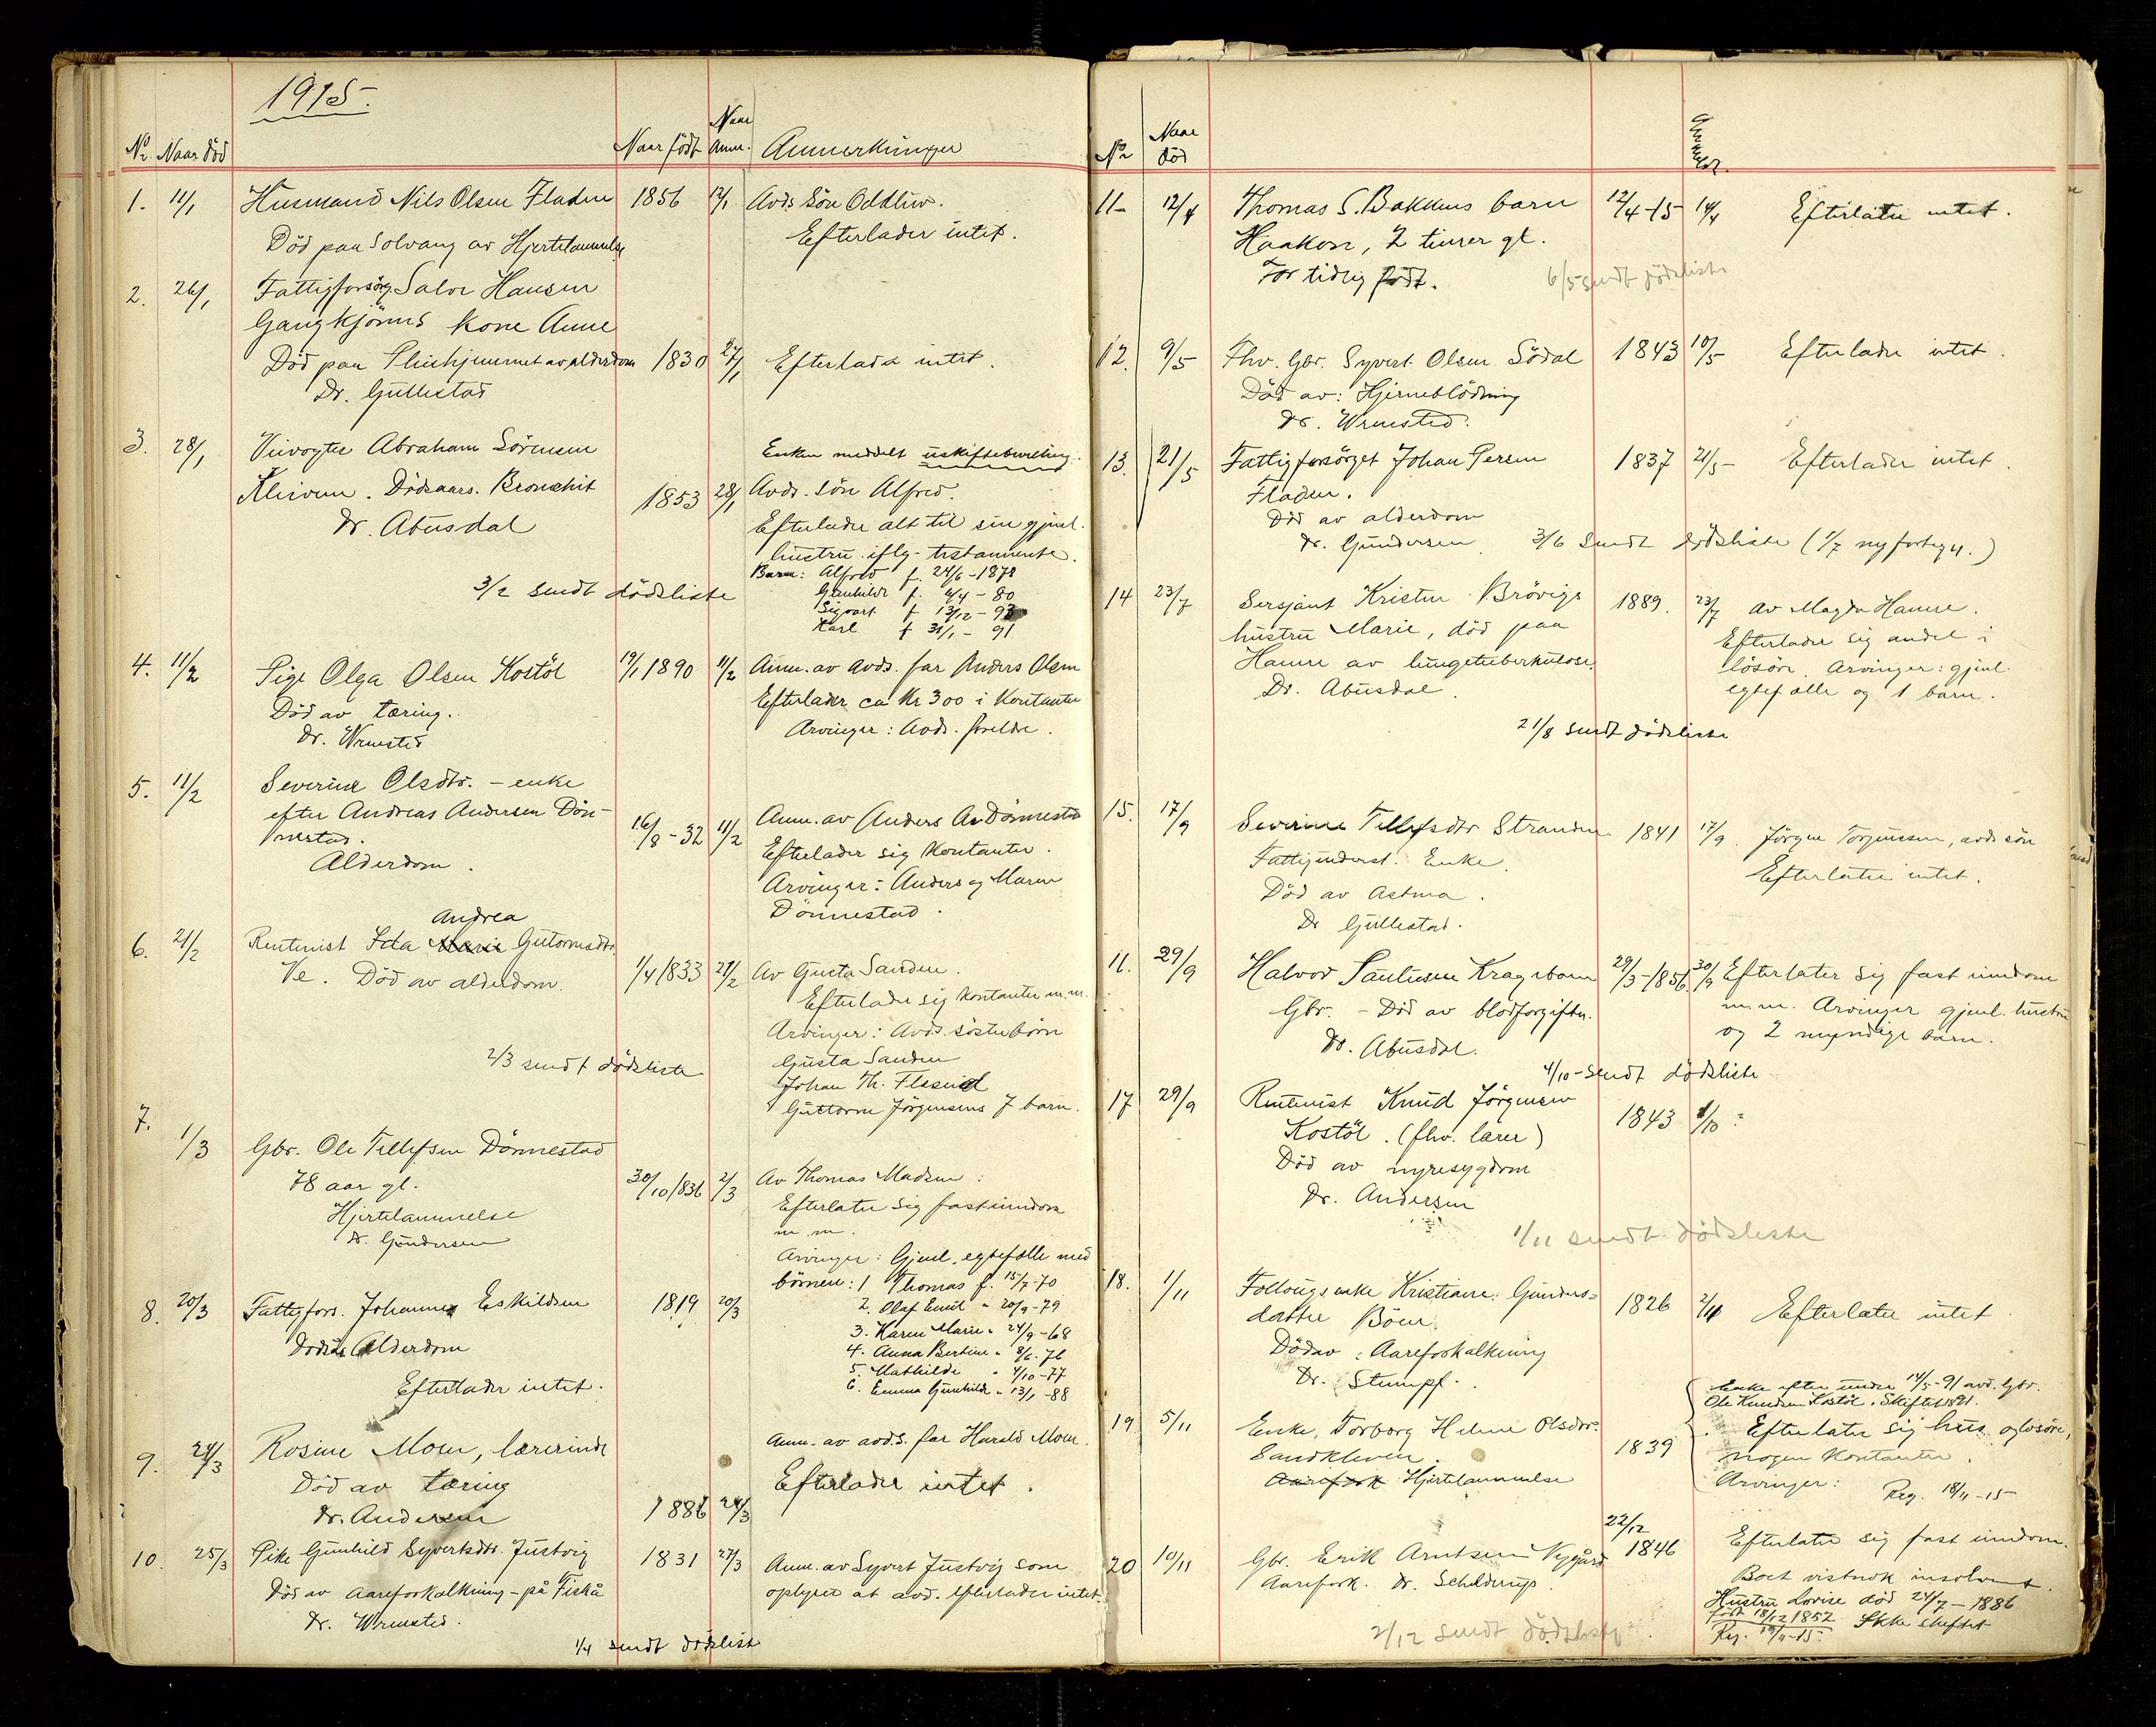 1915.
No Naar død Naar født Naar Anm. Anmerkninger
1. 11/1 Husmand Nils Olsen Fladen 1856 12/1 Avds. søn Oddliv.
Død paa Solvang av Hjertelammelse Efterlader intet.
2. 26/1 Fattigforsørg. Salve Hansen
Gangkjønns kone Anne
Død paa Pleiehjemmet av alderdom 1830 27/1 Efterlader intet.
Dr. Gullestad
3. 28/1 Veivogter Abraham Sørensen Enken meddelt uskiftebevilling.
Kleiven. Dødsaars. Bronchit 1853 28/1 Avds. søn Alfred.
Dr. Abusdal Efterlader alt til sin gjenl.
hustru iflg. testamente.
Barn: Alfred f. 24/6-1878
Gunhilde f. 4/4 - 80
Sigvart f 13/12 - 93
Karl f 31/1 - 91
3/2 sendt dødsliste
4. 11/2 Pige Olga Olsen Kostøl 19/1 1890 11/2 Anm. av avds. far Anders Olsen
Død av tæring. Efterlader ca Kr 300 i Kontanter
Dr. Wrensted Arvinger: Avds. forældre.
5. 11/2 Severine Olsdtr. - enke
efter Andreas Andersen Døn-
nestad. 16/8-32 11/2 Anm. av Anders A. Dønnestad
Alderdom. Efterlader sig Kontanter.
Arvinger: Anders og Maren
Dønnestad.
Andrea
6. 21/2 Rentenist Ida Marie Gutormsdtr.
Ve. Død av alderdom. 1/4 1833 21/2 Av Gusta Sanden.
Efterlader sig Kontanter m.m.
Arvinger: Avds. søsterbørn
2/3 sendt dødsliste Gusta Sanden
Johan Th.
Guttorm Jørgensens 7 barn.
7. 1/3 Gbr. Ole Tellefsen Dønnestad
78 aar gl. 30/10 1836 2/3 Av Thomas Madsen:
Hjertelammelse Efterlater sig fast eiendom
Dr. Gundersen m.m.
Arvinger: Gjenl. egtefælle med
børnene: 1 Thomas f. 15/7-70
2. Olaf Emil " 20/9-79
3. Karen Marie " 24/9-68
4. Anna Bertine " 8/6-76
5. Mathilde " 4/10-77
6. Emma Gunhilde " 13/1-88
8. 20/3 Fattigfors. Johannes Eskildsen 1819 20/3
Dødsaars Alderdom
Efterlader intet.
9. 24/3 Rosine Moen, lærerinde Anm. av avd.s. far Harald Moen.
Død av tæring Efterlader intet.
Dr. Andersen 1886 24/3
10. 25/3 Pike Gunhild Syvertsdtr. Justvig 1831 27/3 Anm. av Syvert Justvig som
Død av aareforkalkning - på Fiskå oplyser at avd. efterlader intet.
Dr. Wrensted.
1/4 sendt dødsliste
No Naar død Anmeldt.
11- 12/4 Thomas S. Bakkens barn 12/4-15 14/4 Efterlater intet.
Haakon, 2 timer gl.
For tidlig født.
6/5 sendt dødsliste
12. 9/5 Fhv. Gbr. Syvert Olsen Sødal 1843 10/5 Efterlader intet.
Død av: Hjerneblødning
Dr. Wrensted.
13. 21/5 Fattigforsørget Johan Persen 1837 21/5- Efterlader intet.
Fladen.
Død av alderdom
Dr. Gundersen. 3/6 sendt dødsliste (1/7 ny fortegn.)
14 23/7 Sersjant Kristen Brøvigs 1889. 23/7 Av Magda Hamre.
hustru Marie, død paa Efterlader sig andel i
Hamre av lungetuberkulose. løsøre. Arvinger: gjenl.
Dr. Abusdal. egtefælle og 1 barn.
21/8 sendt dødsliste
15. 17/9 Severine Tellefsdtr Stranden 1841 17/9. Jørgen Torjussen, avds søn
Fattigunderst. Enke. Efterlater intet.
Død av Astma.
Dr Gullestad.
11. 29/9 Halvor Paulusen Kragebaen 29/3-1856. 30/9 Efterlater sig fast eiendom
Gbr. - Død av blodforgiftn. m.m. Arvinger gjenl. hustru
Dr. Abusdal. og 2 myndige barn.
4/10 - sendt dødsliste
17 29/9 Rentenist Knud Jørgensen 1843 1/10 :
Kostøl. (fhv. lærer)
Død av nyresygdom
Dr. Andersen
1/11 sendt dødsliste
18. 1/11 Follougsenke Kristiane Gunders- 1826 2/11 Efterlater intet.
datter Bøen.
Død av: Aareforkalkning
Dr. Stumpf.
Enke efter under 14/5-91 avd. Gbr.
Ole Knudsen Kostøl. Skiftet 1891.
19. 5/11 Enke, Torborg Helene Olsdtr. 1839 Efterlater sig hus og løsøre,
Sandkleven. nogen Kontanter.
Aarefork Hjertelammelse Arvinger: Reg. 18/11-15
20 10/11 Gbr. Erik Arntsen Nygård 22/12 1846 Efterlater sig fast eiendom.
Aarefork. Dr. Schilderup. Boet vistnok insolvent.
Hustru Lovise død 24/7-1886
født 18/12 1852 Ikke skiftet
Reg. 19/11-15.
2/12 sendt dødsliste